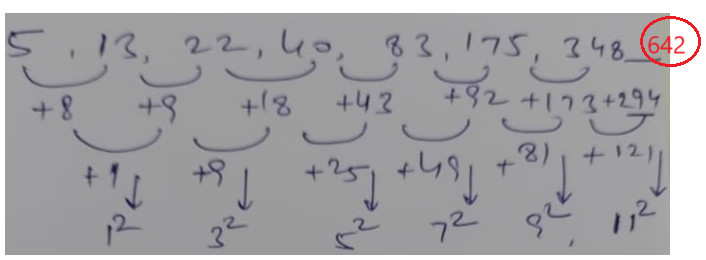 5, 13, 22, 40, 83, 175, 348 642
+8 +9 +18 +43 +92 +173 +294
+1 +9 +25 +49 +81 +121
1² 3² 5² 7² 9², 11²